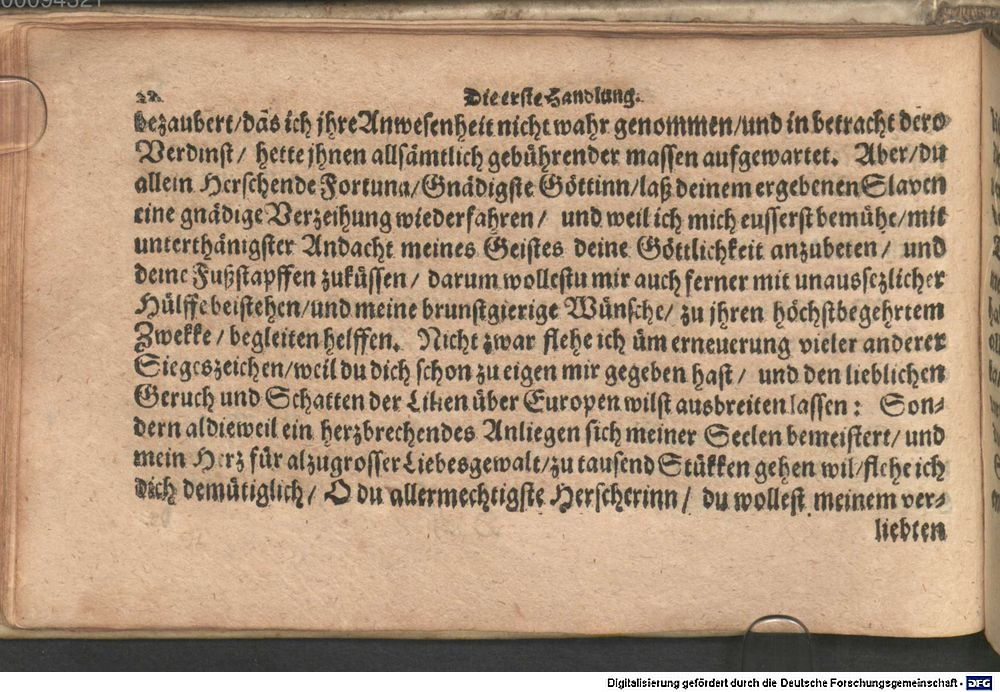 00094321
22. Die erste Handlung.
bezaubert/das ich jhre Anwesenheit nicht wahr genommen/und in betracht dero
Verdinst/ hette jhnen allsämtlich gebührender massen aufgewartet. Aber/du
allein Herschende Fortuna/Gnädigste Göttinn/laß deinem ergebenen Slaven
eine gnädige Verzeihung wiederfahren/ und weil ich mich eusserst bemühe/mit
unterthänigster Andacht meines Geistes deine Göttlichkeit anzubeten/ und
deine Fußstapffen zuküssen/ darum wollestu mir auch ferner mit unaussezlicher
Hülffe beistehen/und meine brunstgierige Wünsche/ zu jhren höchstbegehrtem
Zwekke/ begleiten helffen. Nicht zwar flehe ich üm erneuerung vieler anderer
Siegeszeichen/weil du dich schon zu eigen mir gegeben hast/ und den lieblichen
Geruch und Schatten der Lilien über Europen wilst ausbreiten lassen: Son-
dern aldieweil ein herzbrechendes Anliegen sich meiner Seelen bemeistert/ und
mein Herz für alzugrosser Liebesgewalt/zu tausend Stükken gehen wil/flehe ich
dich demütiglich/ O du allermechtigste Herscherinn/ du wollest meinem ver-
liebten
Digitalisierung gefördert durch die Deutsche Forschungsgemeinschaft - DFG